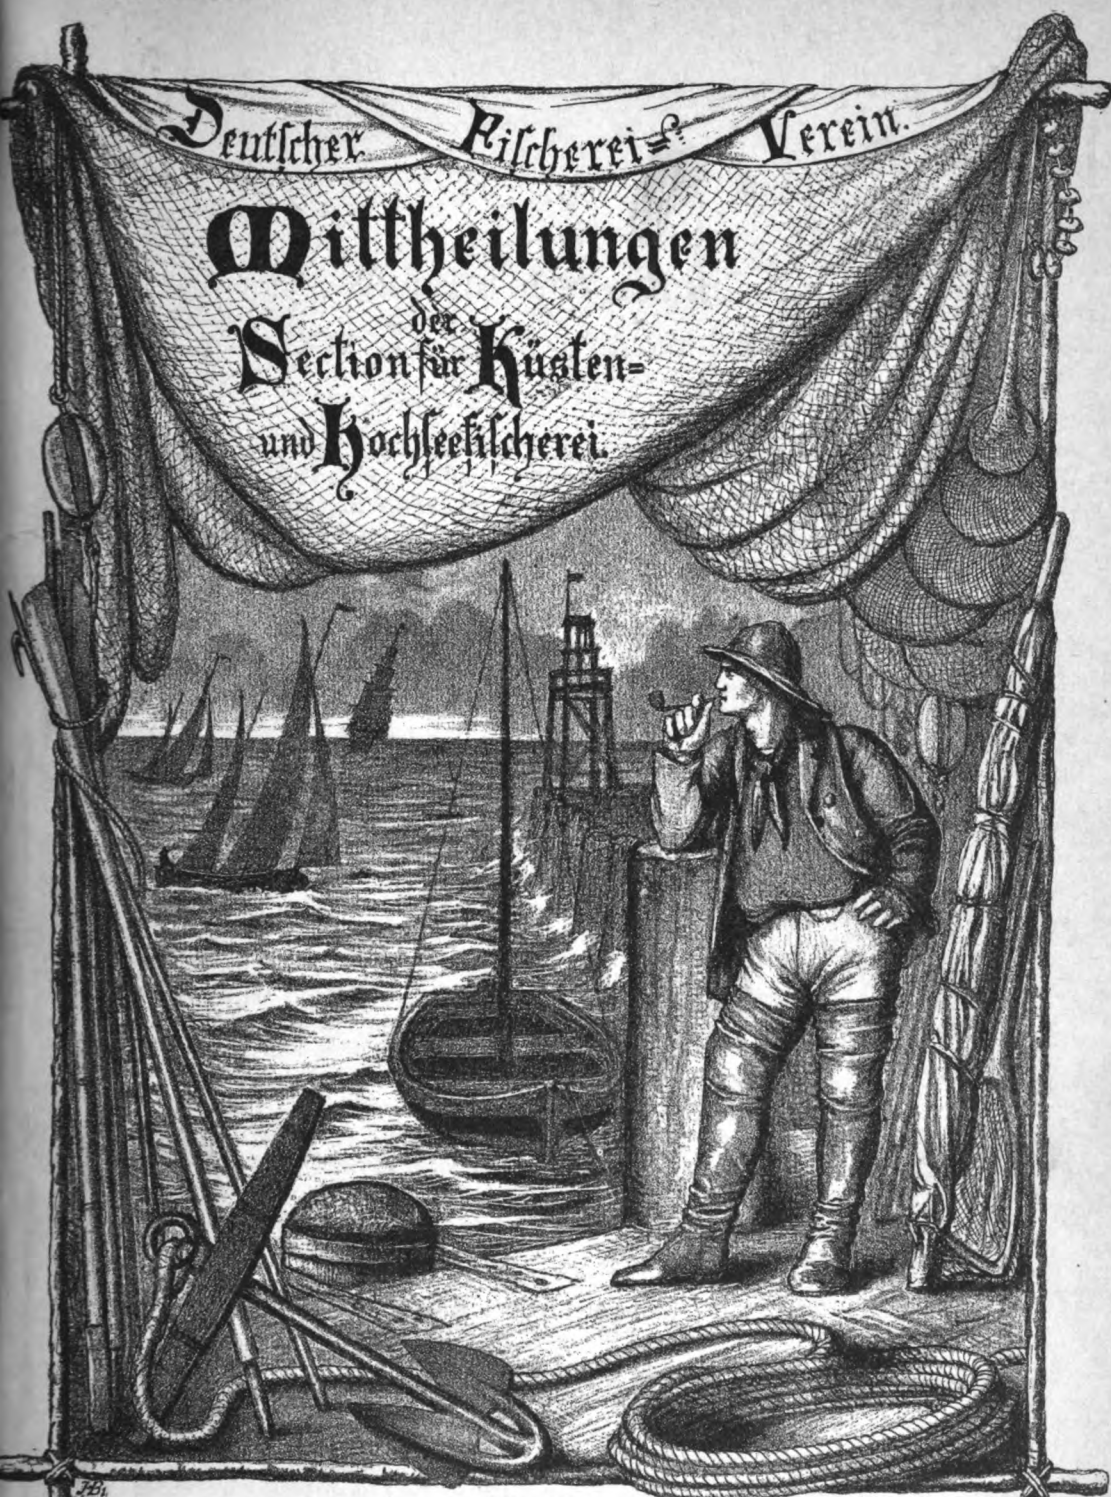 Deutscher Fischerei= Verein.
Mittheilungen
der
Section für Küsten=
und Hochseefischerei.